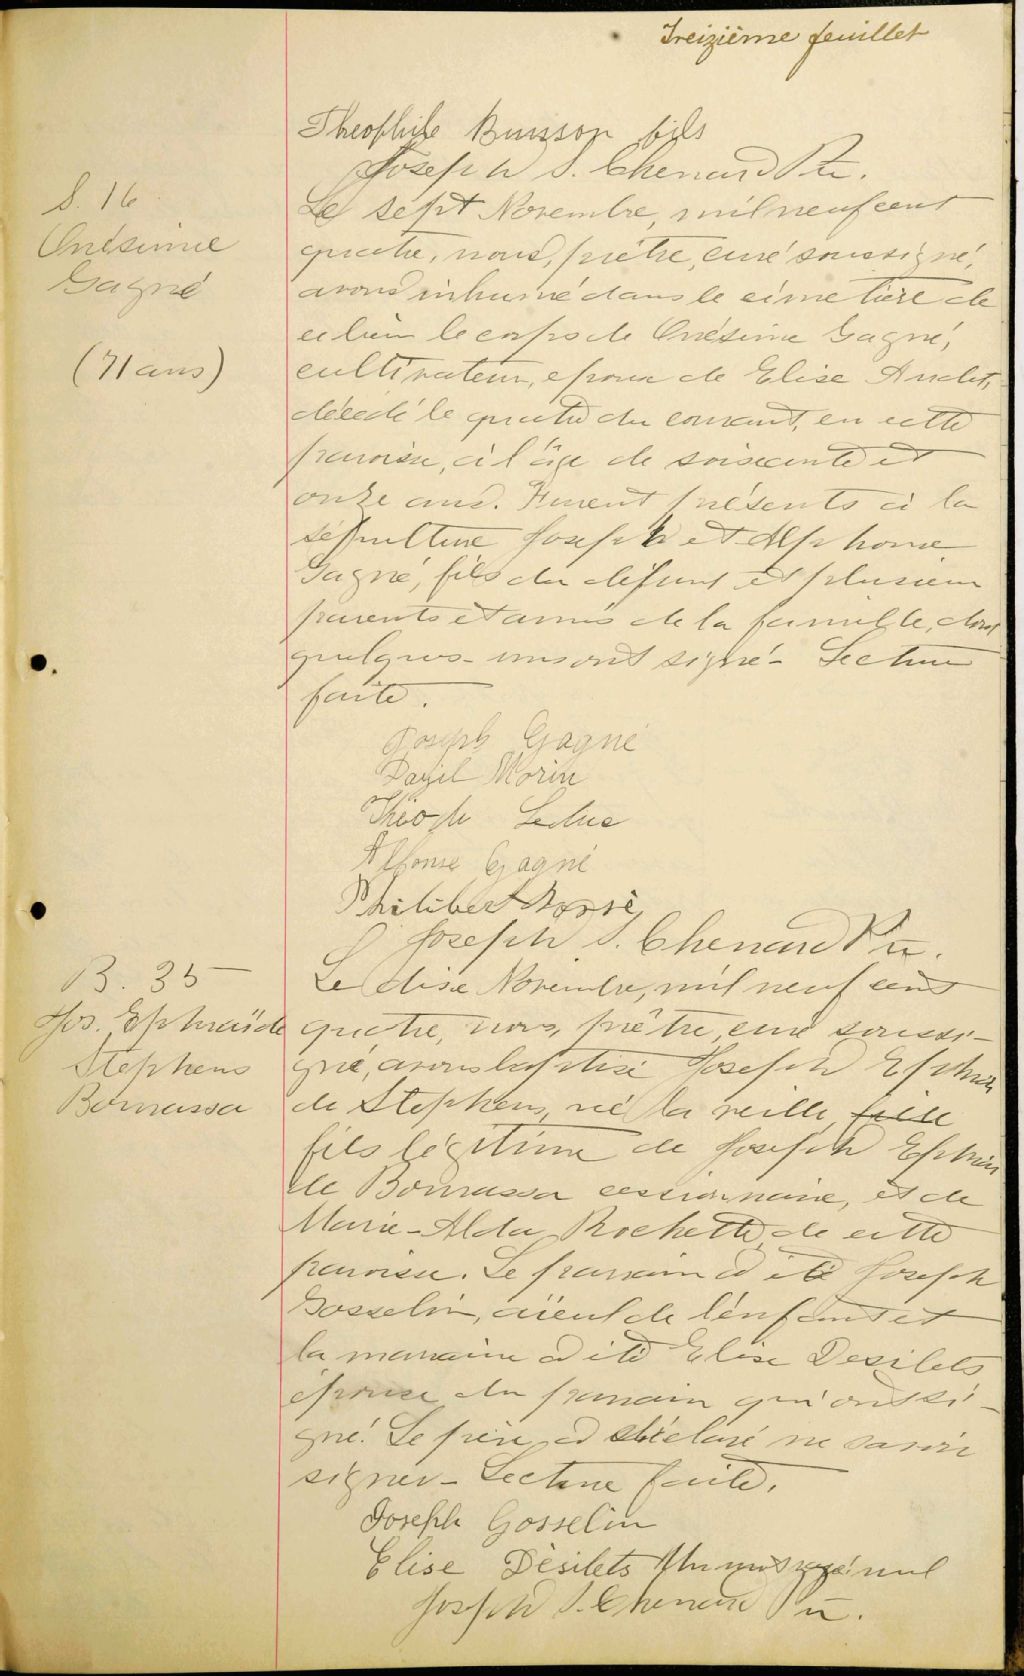 Treizième feuillet
Theophile Buisson fils
Joseph S. Chenard Ptr.
S. 16
Onésime
Gagné
(71 ans)
Le sept Novembre, mil neuf cent
quatre, nous, prêtre, curé soussigné,
avons inhumé dans le cimetière de
ce lieu le corps de Onésime Gagné,
cultivateur, epoux de Elise Audet,
décédé le quatre du courant, en cette
paroisse, à l'âge de soixante et
onze ans. Furent présents à la
sépulture Joseph et Alphonse
Gagné, fils du défunt et plusieurs
parents et amis de la famille, dont
quelques-uns ont signé - Lecture
faite.
Joseph Gagné
Morin
Théode Leduc
Alfonse Gagné
Philibert
Joseph S. Chenard Ptr.
B. 35
Jos. Ephraïde
Stephens
Bourassa
Le dix Novembre, mil neuf cent
quatre, nous, prêtre, curé soussi-
gné, avons baptisé Joseph Ephraï
de Stephens, né la veille, fille
fils légitime de Joseph Ephraï
de Bourassa cessionnaire, et de
Marie-Alda Rochette de cette
paroisse. Le parrain a été Joseph
Gosselin, aïeul de l'enfant et
la marraine a été Elise Desilets
épouse du parrain qui ont si-
gné. Le père a déclaré ne savoir
signer - Lecture faite.
Joseph Gosselin
Elise Désilets Un mot rayé nul
Joseph S. Chenard Ptr.